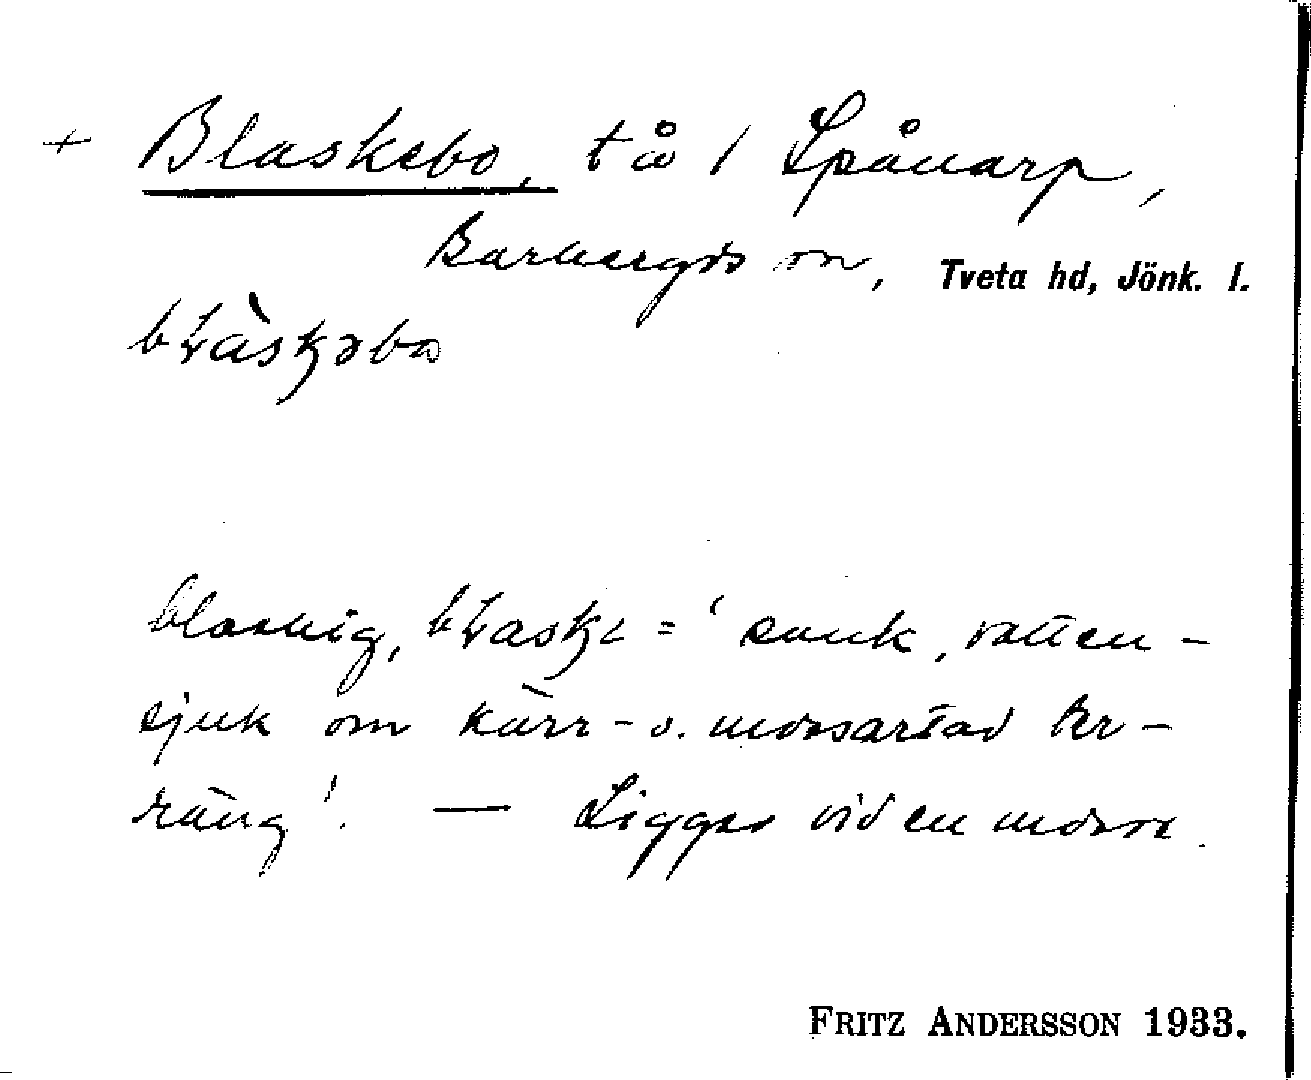 + Blaskebo, tå / Spånarp,
Barnarps sn, Tveta hd, Jönk. l.
bɫàskəbo
blaskig, bɫaskɩ = 'sank, vatten-
sjuk om kärr- o. mossartad ter-
räng'. — Ligger vid en mosse.
FRITZ ANDERSSON 1933.